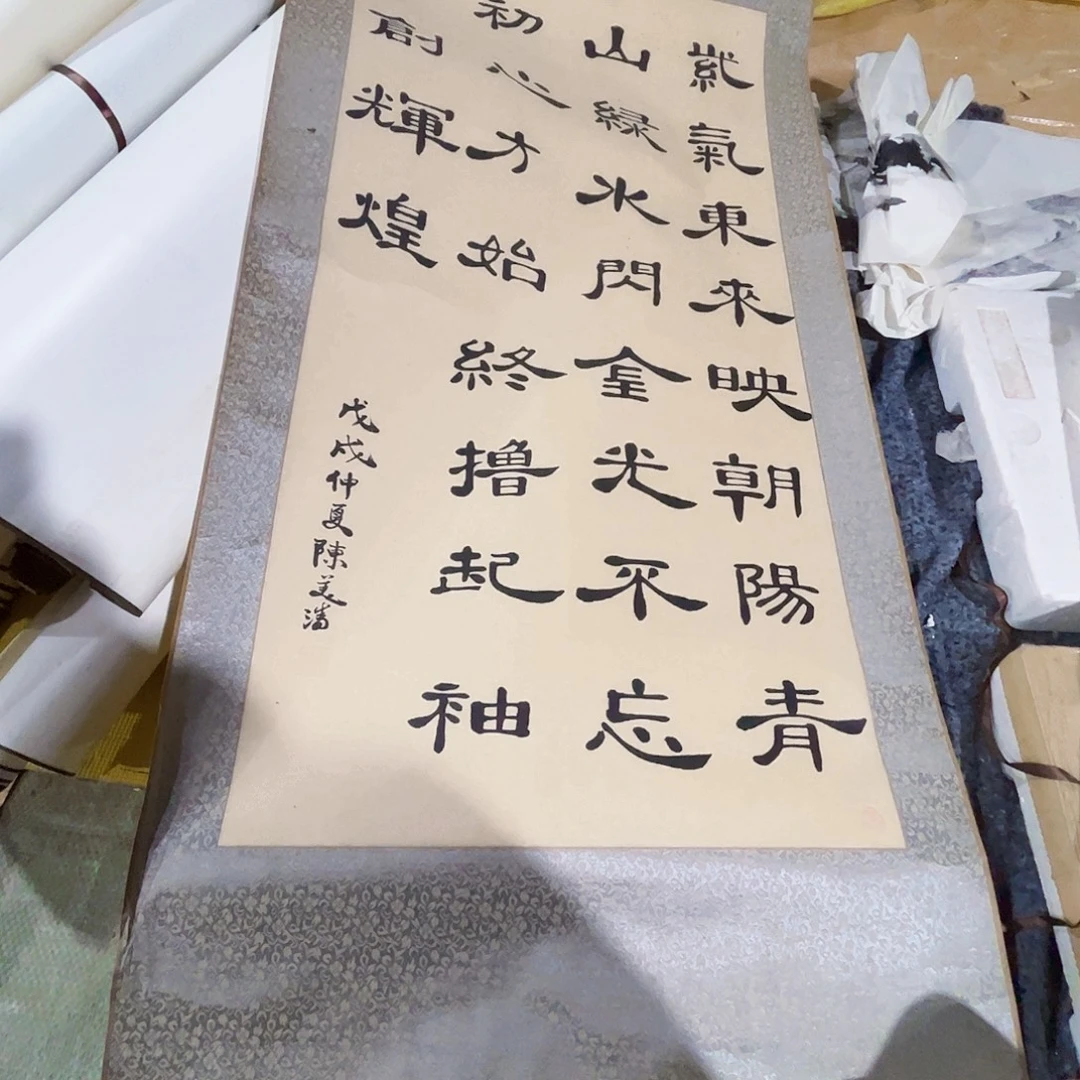 紫氣東來映朝陽青
山緑水閃金光不忘
初心方始終擼起袖
創輝煌
戊戌仲夏陳美潘